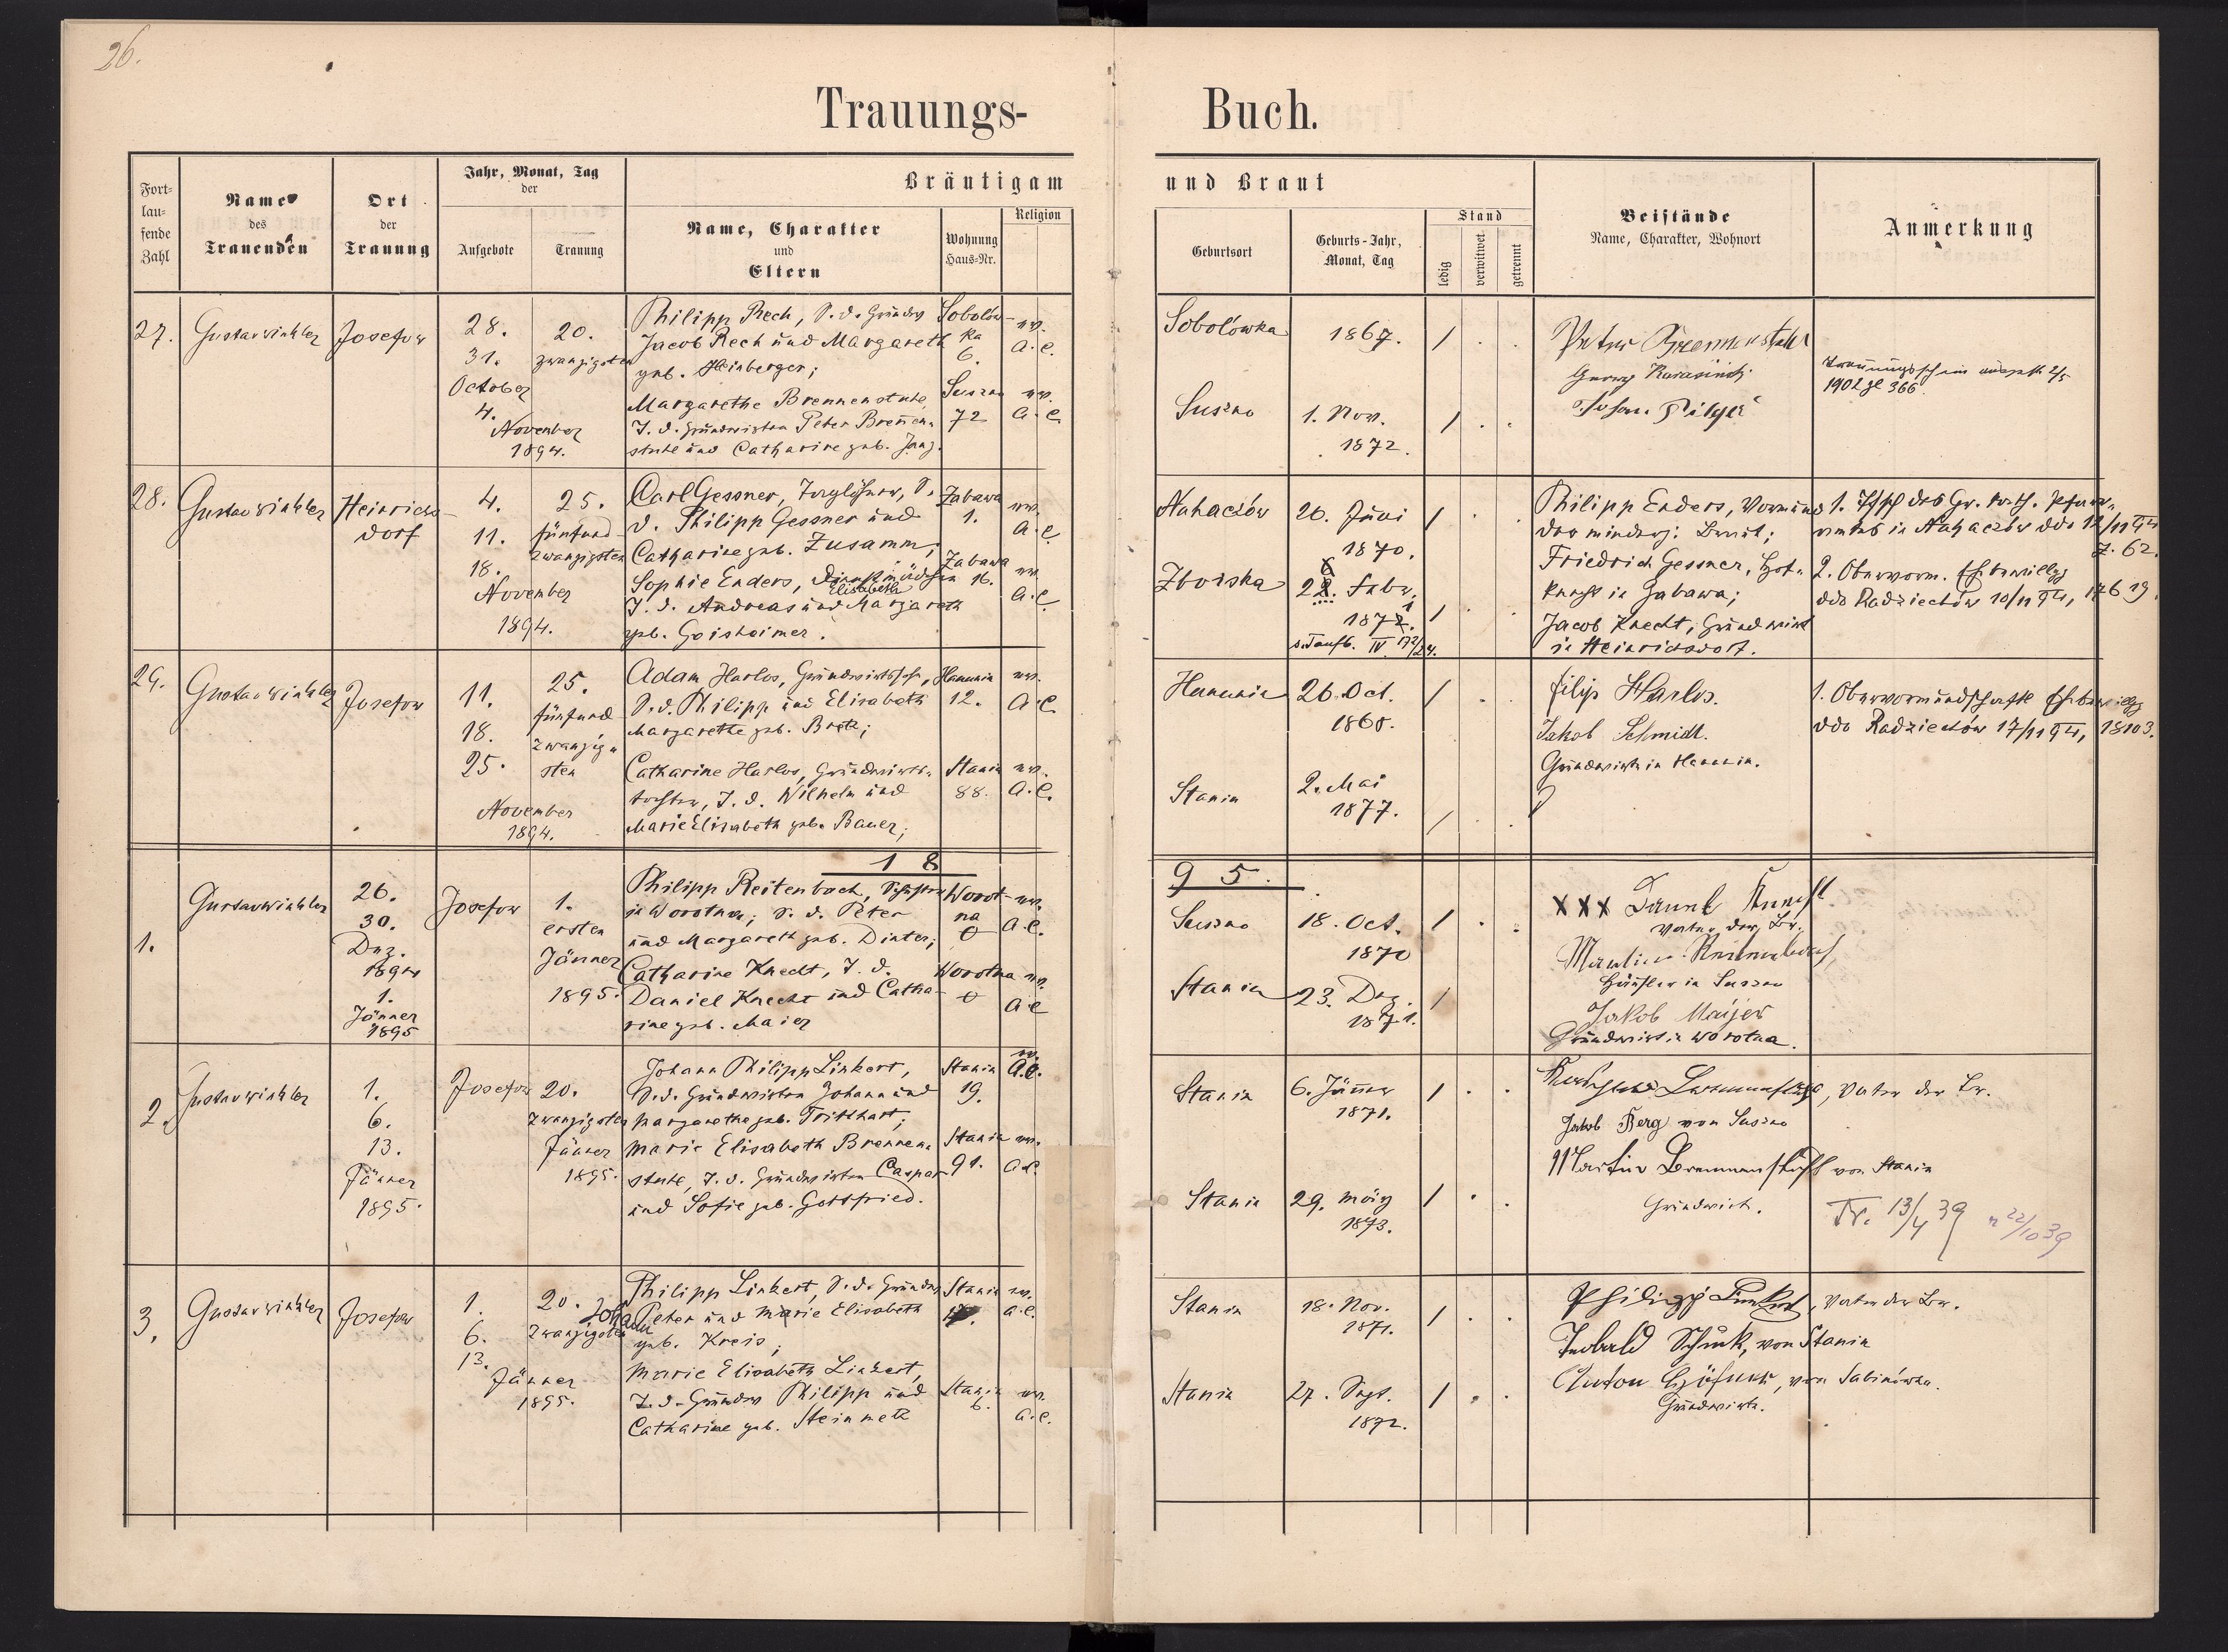 26.
Trauungs-
Buch.
Fort-
lau-
fende
Zahl
Name
des
Trauenden
Ort
der
Trauung
Jahr, Monat, Tag
der
Aufgebote
Trauung
Bräutigam
Name, Charakter
und
Eltern
Wohnung
Haus-Nr.
Religion
und Braut
Geburtsort
Geburts-Jahr,
Monat, Tag
Stand
ledig
verwitwet
getrennt
Beistände
Name, Charakter, Wohnort
Anmerkung
27.
Gustav Winkler
Josefow
28.
31.
October
4.
November
1894.
20.
zwanzigsten
Philipp Rech, S. d. Grundw
Jacob Rech und Margareth
geb. Heinberger;
Margarethe Brennenstuhl
T. d. Grundwirten Peter Brenen-
stuhl und Catharine geb. Jung.
Sobolów-
ka
6.
Suszno
72
ev.
A. C.
ev.
A. C.
Sobolówka
1867.
Suszno
1. Nov.
1872.
Peter Brennenstuhl
Georg
Johan
Trauungsschein ausgest 2/5
1902 Zl 366
28.
Gustav Winkler
Heinrichs-
dorf
4.
11.
18.
November
1894.
25.
fünfund-
zwanzigsten
Carl Gessner, Taglöhner, S.
d. Philipp Gessner und
Catharine geb. Zusamm;
Sophie Enders, Dienstmädchen
Elisabeth
T. d. Andreas und Margareth
geb. Geisheimer.
Zabawa
1.
Zabawa
16.
ev.
A. C.
ev.
A. C.
Nahaczów
20. Juni
1870.
Zboiska
22. Febr.
1872.
s. Taufb. IV
Philipp Enders, Vormund
der minderj. Braut;
Friedrich Gessner, Hof-
knecht in Zabawa;
Jacob Knecht, Grundwirt
in Heinrichsdorf.
1. des Gr. kath. Pfarr-
amtes in Nahaczów ddo 12/11 94
Z. 62.
2. Obervorm. Ehebewillgg
ddo Radziechów 10/11 94, 17619.
29.
Gustav Winkler
Josefow
11.
18.
25.
November
1894.
25.
fünfund
zwanzig-
sten
Adam Harlos, Grundwirtssohn,
S. d. Philipp und Elisabeth
Margarethe geb. Breth;
Catharine Harlos, Grundwirts-
tochter, T. d. Wilhelm und
Marie Elisabeth geb. Bauer;
Hanunin
12.
Stanin
88.
ev.
A. C.
ev.
A. C.
Hanunin
26. Oct.
1868.
Stanin
2. Mai
1877.
filip Harlos.
Jakob Schmidt.
Grundwirte in Hanunin.
1. Obervormundschaftl Ehebewillgg
ddo Radziechów 17/11 94, 18103.
18
95.
1.
Gustav Winkler
26.
30.
Dez.
1894
1.
Jänner
1895
Josefow
1.
ersten
Jänner
1895.
Philipp Reitenbach, Schuster
in Worotna; S. d. Peter
und Margareth geb. Dinter;
Catharine Knecht, T. d.
Daniel Knecht und Catha-
rine geb. Maier
Worot-
na
0
Worotna
0
ev.
A. C.
ev.
A. C
Suszno
18. Oct.
1870
Stanin
23. Dez.
1871.
XXX Daniel Knecht
Vater der Br.
Häusler in Suszno
Jakob Maijer
Grundwirt in Worotna.
2.
Gustav Winkler
1.
6.
13.
Jänner
1895.
Josefow
20.
zwanzigsten
Jänner
1895.
Johann Philipp Linkert,
S. d. Grundwirten Johann und
Margarethe geb. Tritthart;
Marie Elisabeth Brennen-
stuhl, T. d. Grundwirten Caspar
und Sofie geb. Gottfried.
Stanin
19.
Stanin
91.
ev.
A. C.
ev.
A. C.
Stanin
6. Jänner
1871.
Stanin
29. März
1873.
Brennenstuhl, Vater der Br.
Jakob Berg von Suszno
Martin Brennenstuhl von Stanin
Grundwirt.
Tr. 13/4 39
22/10 39
3.
Gustav Winkler
Josefow
1.
6.
13.
Jänner
1895.
20.
zwanzigsten
Philipp Linkert, S. d. Grundw
Johann
Peter und Marie Elisabeth
geb. Kreis;
Marie Elisabeth Linkert,
T. d. Grundw Philipp und
Catharine geb. Steinmetz
Stanin
Stanin
6.
ev.
A. C.
ev.
A. C.
Stanin
18. Nov.
1871.
Stanin
27. Sept.
1872.
Philipp Linkert, Vater der Br.
Schenk, von Stanin
Anton, von Sabinówka.
Grundwirte.